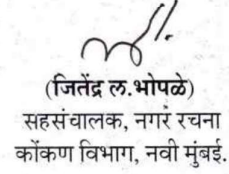 (जितेंद्र ल.भोपळे)
सहसंचालक, नगर रचना
कोंकण विभाग, नवी मुंबई.